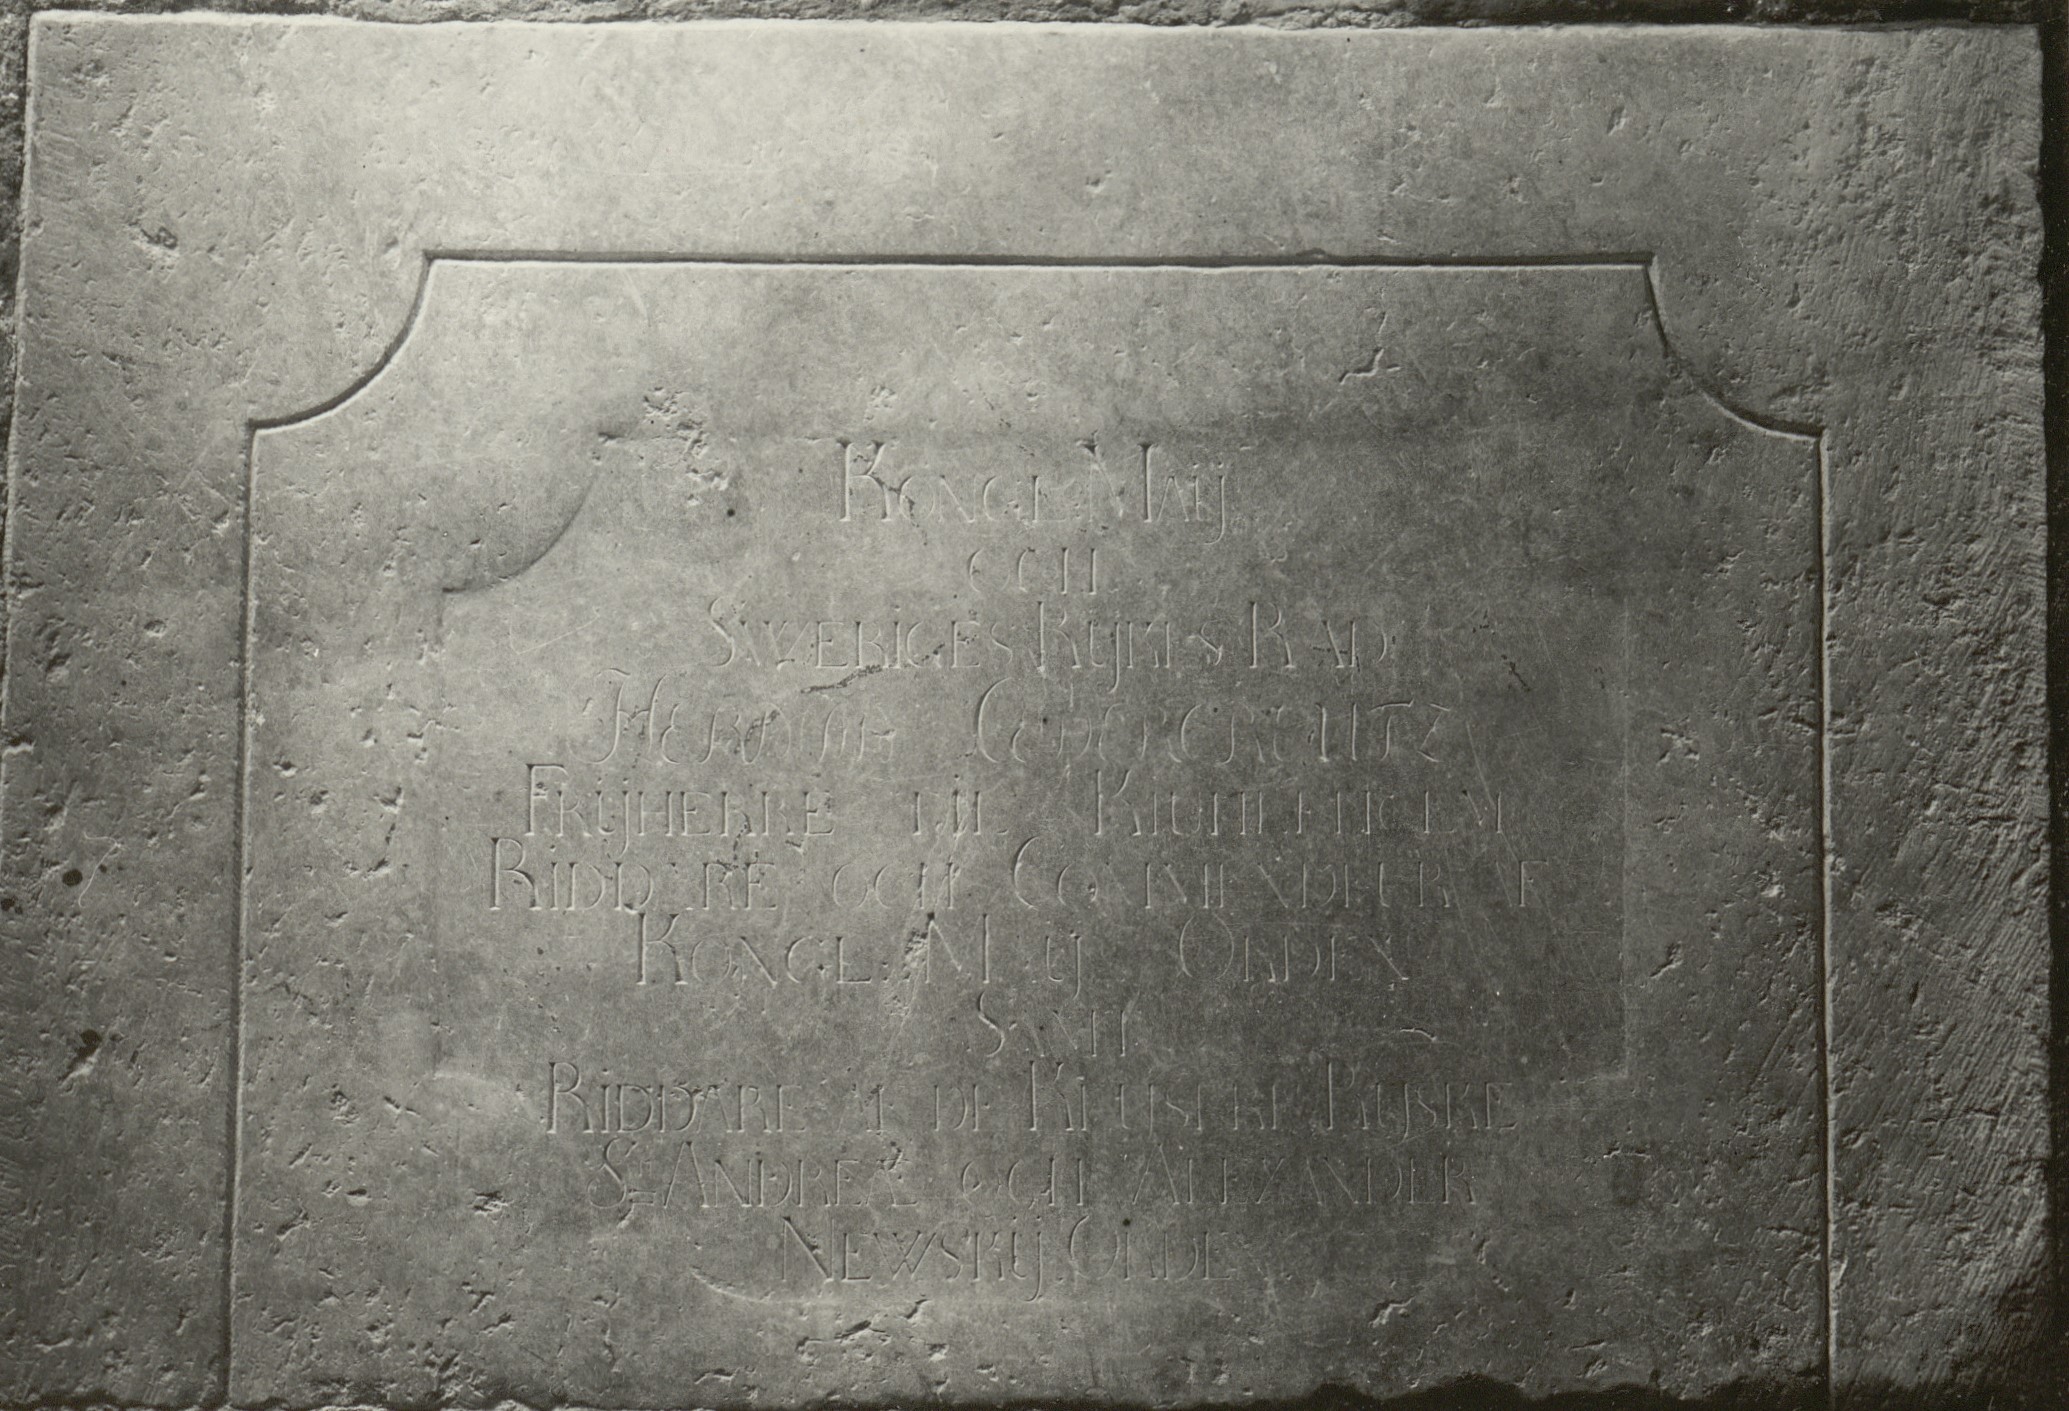 KONGL MAIJ
OCH
SWERIGES RIJKES RAD
HERMAN CEDERCREUTZ
FRIJHERRE TIL
RIDDARE OCH COMMENDEUR AF
KONGL MAIJ ORDEN
SAMT
RIDDARE AF DE KEUSERE RIJSKE
St ANDREÆ OCH ALEXANDER
NEWSKIJ ORDE